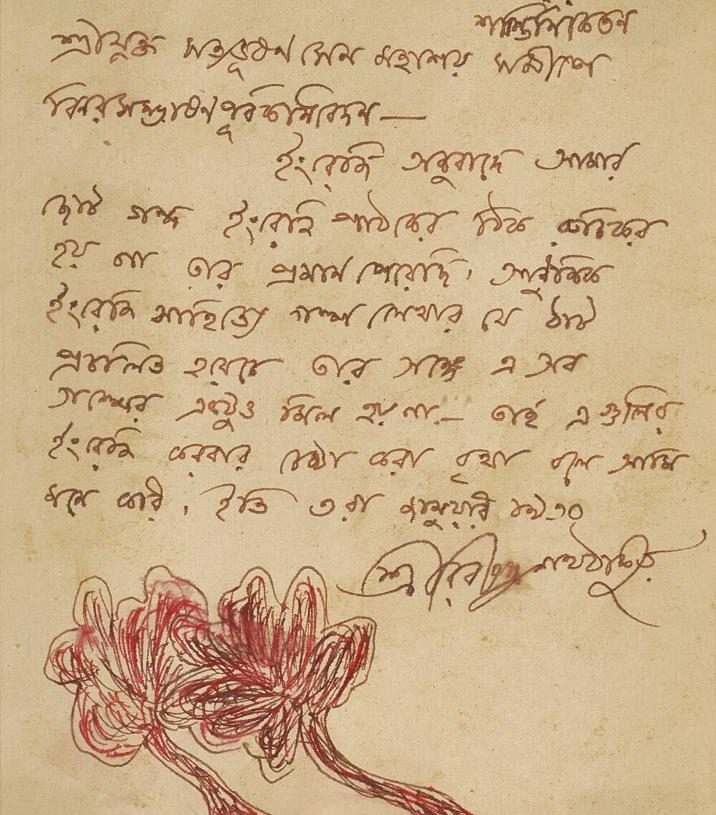 শান্তিনিকেতন
শ্রীযুক্ত সত্যভূষণ সেন মহাশয় সমীপে
বিনয়সম্ভাষণপূর্বক নিবেদন—
ইংরেজি অনুবাদে আমার
ছোট গল্প ইংরেজি পাঠকের ঠিক রুচিকর
হয় না তার প্রমাণ পেয়েছি। আধুনিক
ইংরেজি সাহিত্যে গল্প লেখার যে ঠাট
প্রচলিত হয়েছে তার সঙ্গে এ সব
গল্পের একটুও মিল হয় না— তাই এগুলির
ইংরেজি করবার চেষ্টা করা বৃথা বলে আমি
মনে করি। ইতি ৩রা জানুয়ারি
শ্রীরবীন্দ্রনাথ ঠাকুর